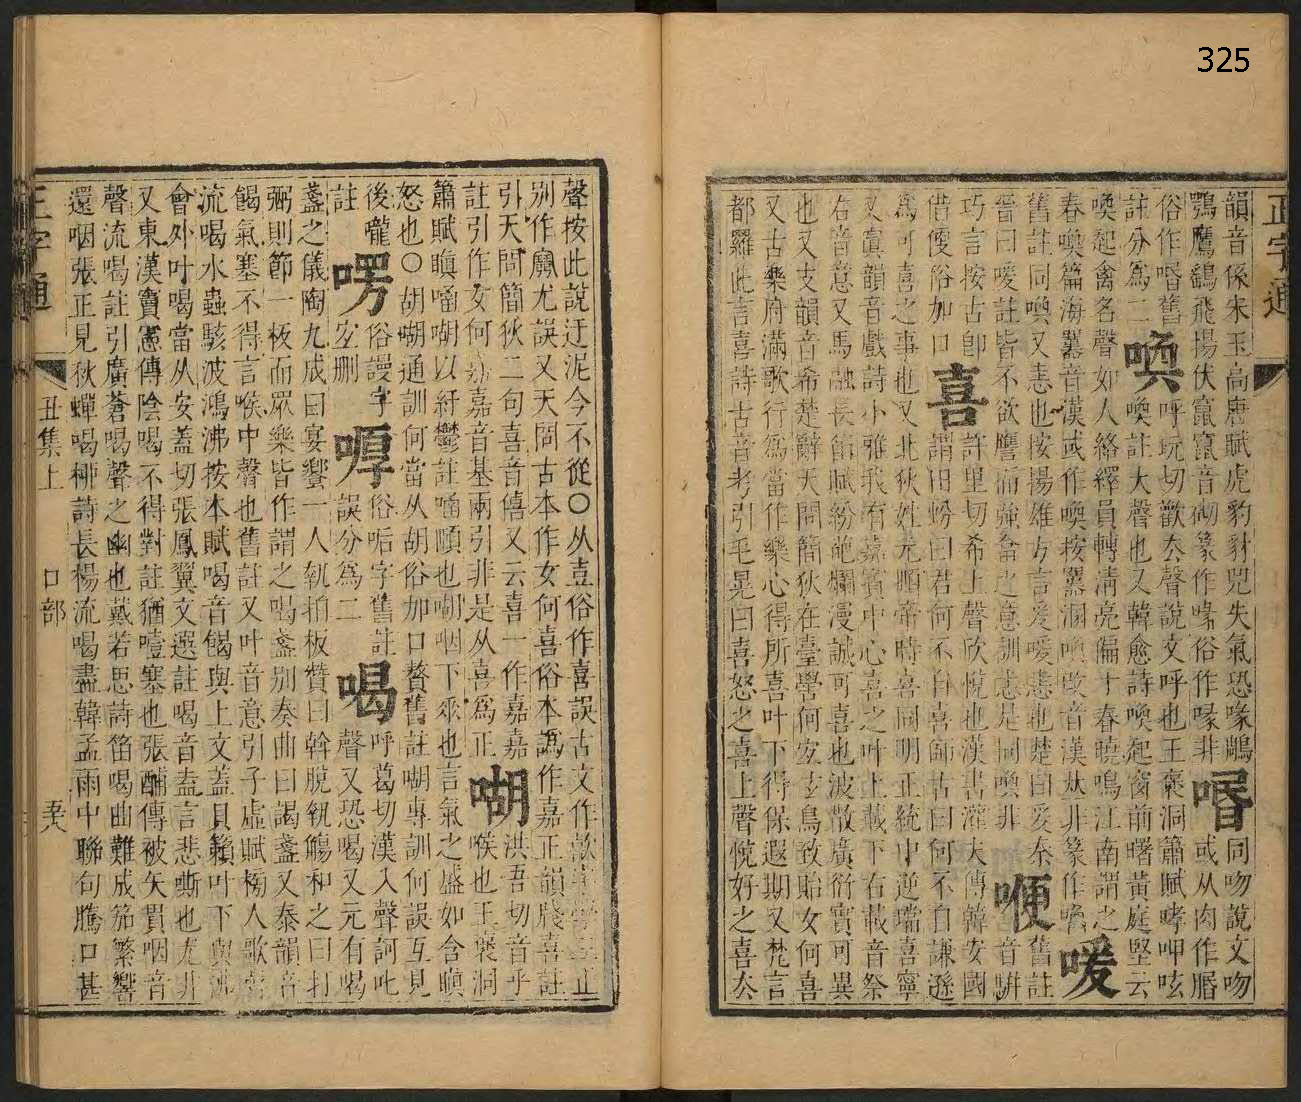 325
正字通
韻音係宋玉高唐賦虎豹豺兕失氣恐喙鵰
鶚鷹鷂飛揚伏竄竄音砌篆作喙俗作喙非 㖧 同吻說文吻
或从肉作脗
俗作㖧舊 喚 呼玩切歡去聲說文呼也王褒洞簫賦哮呷呟
註分爲二 喚註大聲也又韓愈詩喚起窗前曙黃庭堅云
喚起禽名聲如人絡繹員轉清亮偏于春曉鳴江南謂之
春喚篇海嚣音漢或作喚按嚣溷喚改音漢𠀤非篆作喚 喛 舊註
舊註同喚又恚也按揚雄方言爰喛恚也楚曰爰秦
晉曰喛註皆不欲譍而強畣之意訓恚是同喚非 㛹 音騈
巧言按古卽
借便俗加口 喜 許里切希上聲欣悅也漢書灌夫傳韓安國
謂田蚡曰君何不自喜師古曰何不自謙遜
爲可喜之事也又北狄姓元順帝時喜同明正統中逆黨喜寧
又寘韻音戲詩小雅我有嘉賓中心喜之叶上載下右載音祭
右音意又馬融長笛賦紛葩爛漫誠可喜也波散廣衍實可異
也又支韻音希楚辭天問簡狄在臺嚳何宐玄鳥致貽女何喜
又古樂府滿歌行爲當作樂心得所喜叶下得保遐期又梵言
都羅此言喜詩古音考引毛晃曰喜怒之喜上聲悅好之喜去
聲按此說迂泥今不從〇从壴俗作喜誤古文作歖
別作㝆尤誤又天問古本作女何喜俗本譌作嘉正韻賤喜註
引天問簡狄二句喜音僖又云喜一作嘉嘉 㗅 洪吾切音乎
喉也王褒洞
註引作女何嘉嘉音基兩引非是从喜爲正
簫賦瞋㖮㗅以紆鬱註㖮頤也㗅咽下垂也言氣之盛如含瞋
怒也〇胡㗅通訓何當从胡俗加口贅舊註㗅專訓何誤互見
後嚨
註 㖾 俗謾字
宐刪 㖃 俗垢字舊註
誤分爲二 喝 呼葛切漢入聲訶叱
聲又恐喝又元有喝
盞之儀陶九成曰宴饗一人執拍板贊曰斡脫執觴和之曰打
弼則節一板而眾樂皆作謂之喝盞別奏曲曰謁盞又泰韻音
餲氣塞不得言喉中聲也舊註又叶音意引子虛賦榜人歌
流喝水蟲駭波鴻沸按本賦喝音餲與上文蓋貝籟叶下與沸
會外叶喝當从安蓋切張鳳翼文選註喝音盍言悲嘶也尤非
又東漢竇憲傳陰喝不得對註猶噎塞也張酺傳被矢貫咽音
聲流喝註引廣蒼喝聲之幽也戴若思詩笛喝曲難成笳繁響
還咽張正見秋蟬喝柳詩長楊流喝盡韓孟雨中聯句騰口甚
正字通
丑集上
口部
五八